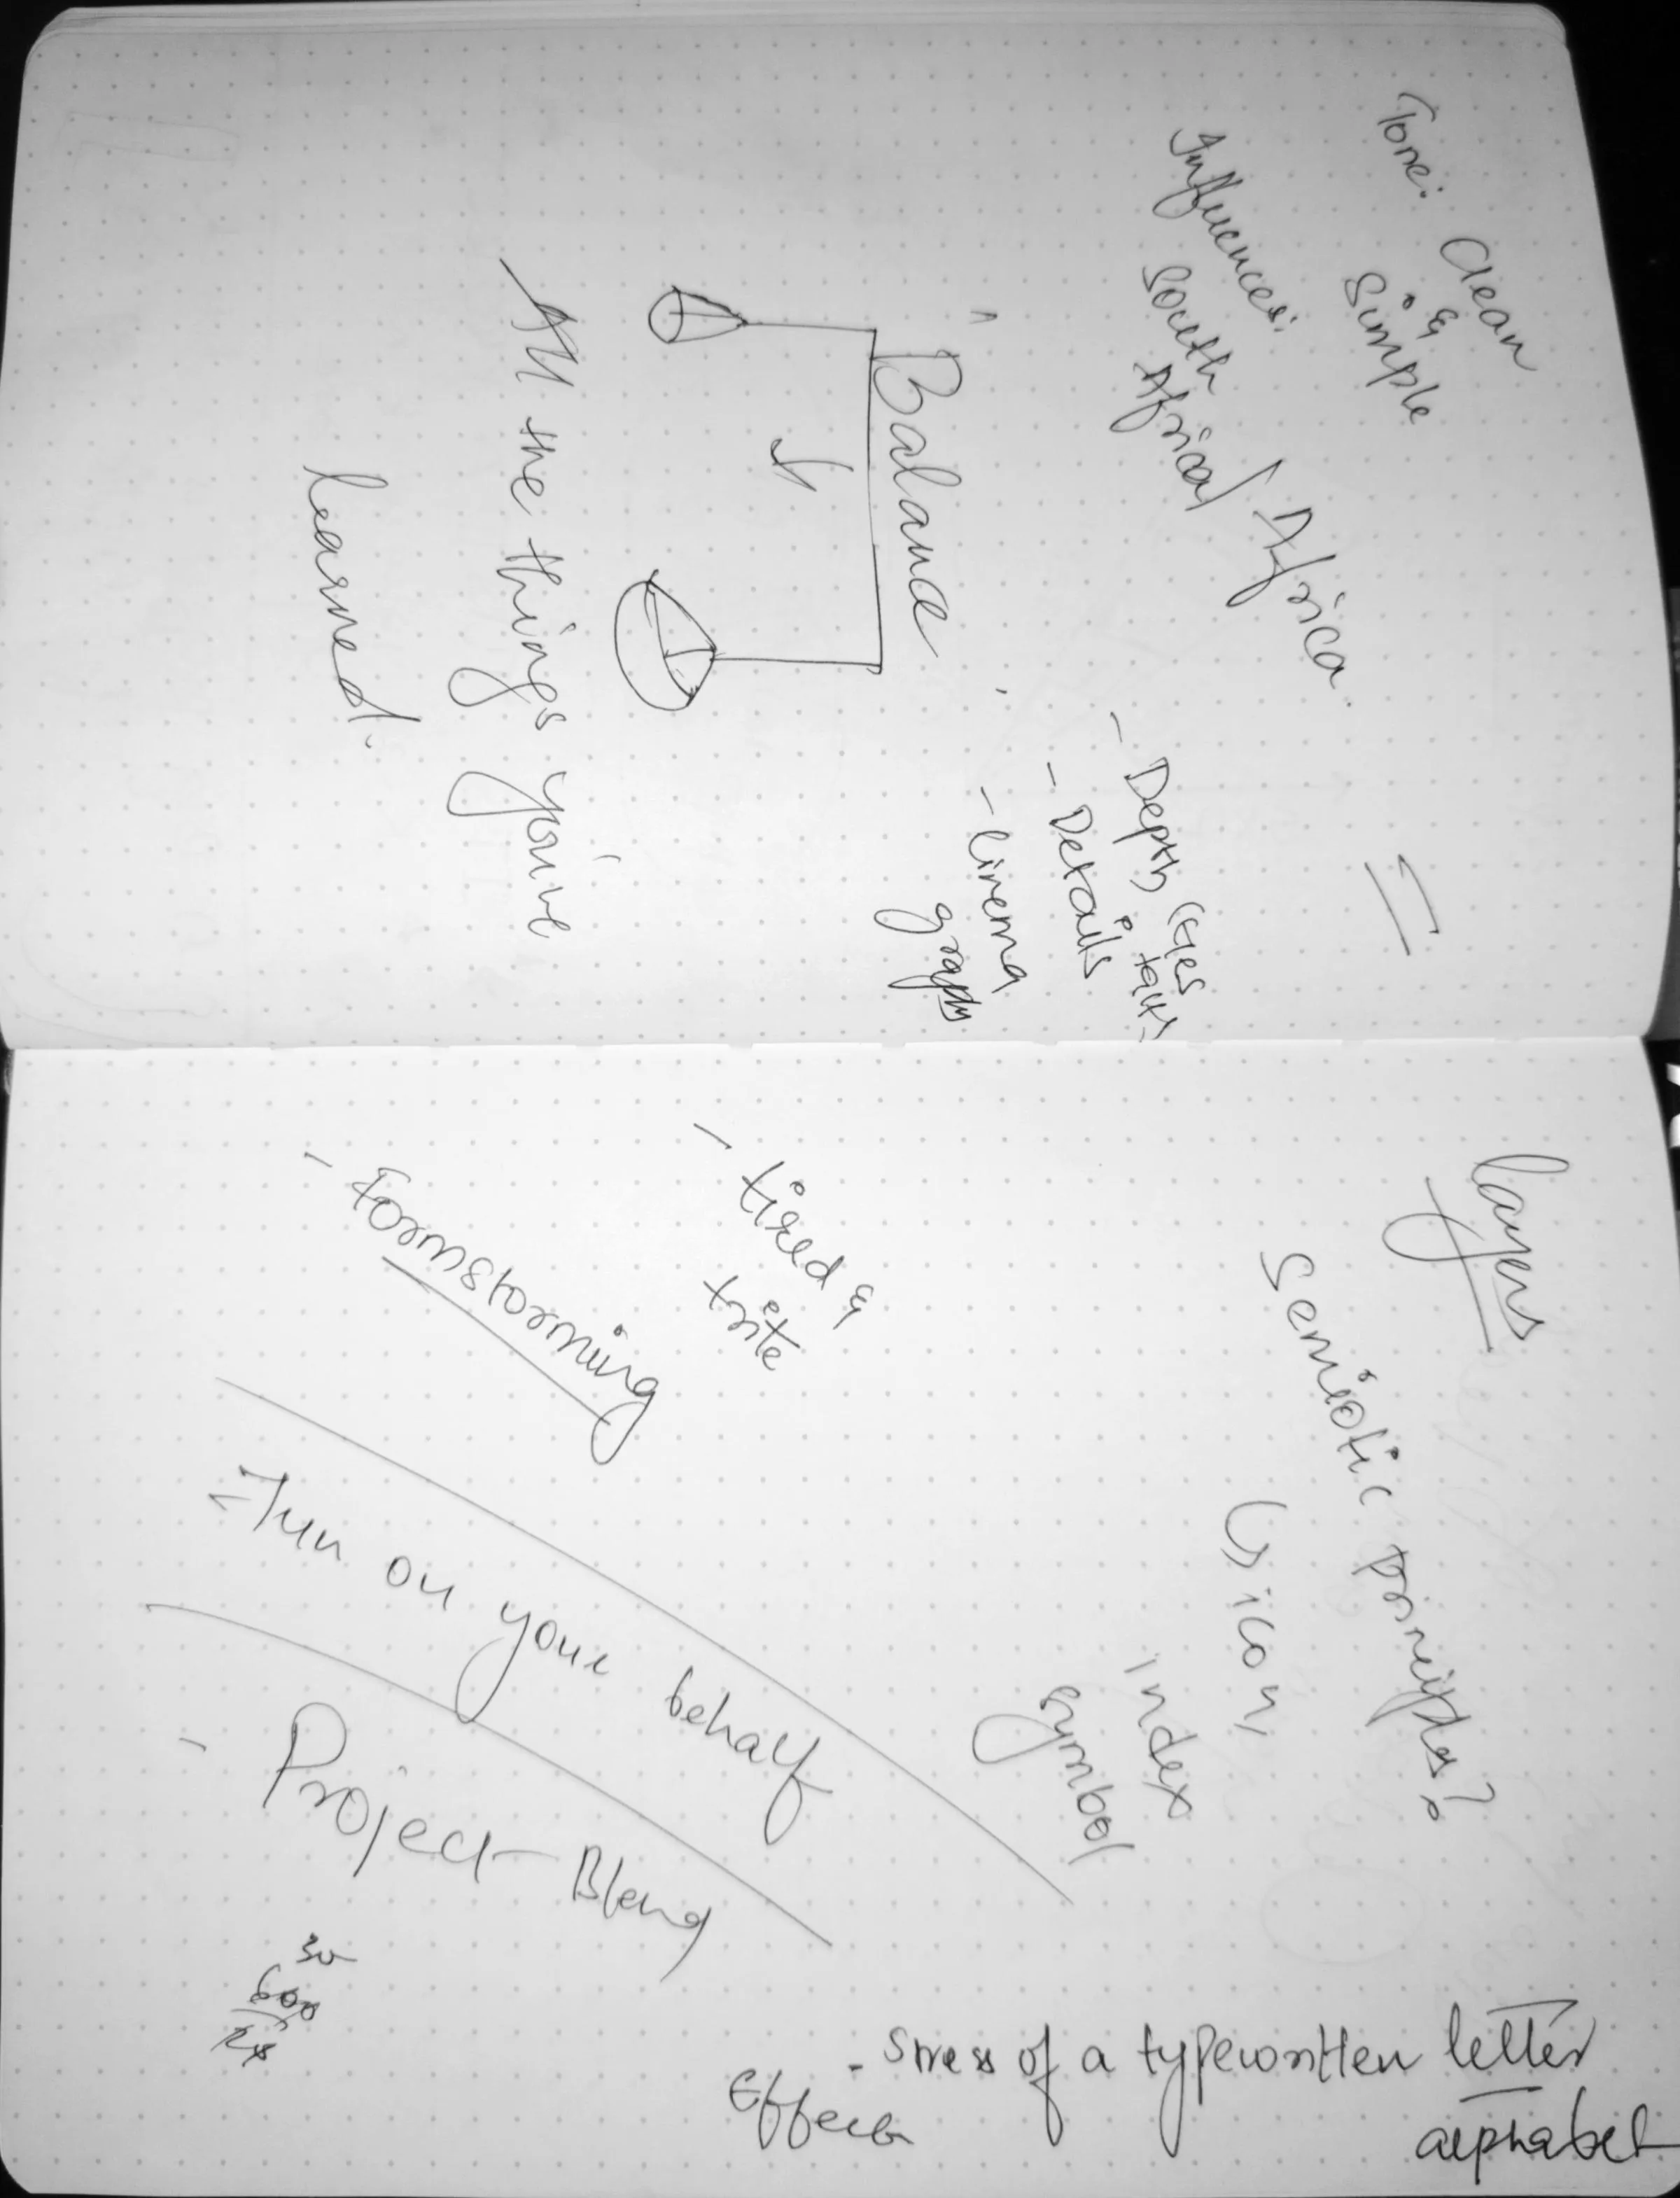 Tone: Clean
&
Simple
Influences:
South
African / Africa.
- Depth
- Details
graphy
"Balance"
All the things you've
learned.
layers
Semiotic principles?
↳ icon,
index
symbol
- tired &
trite
- formstorming
Turn on your behalf
- Project Bland
30
600
- Stress of a typewritten letter
alphabet
Effect